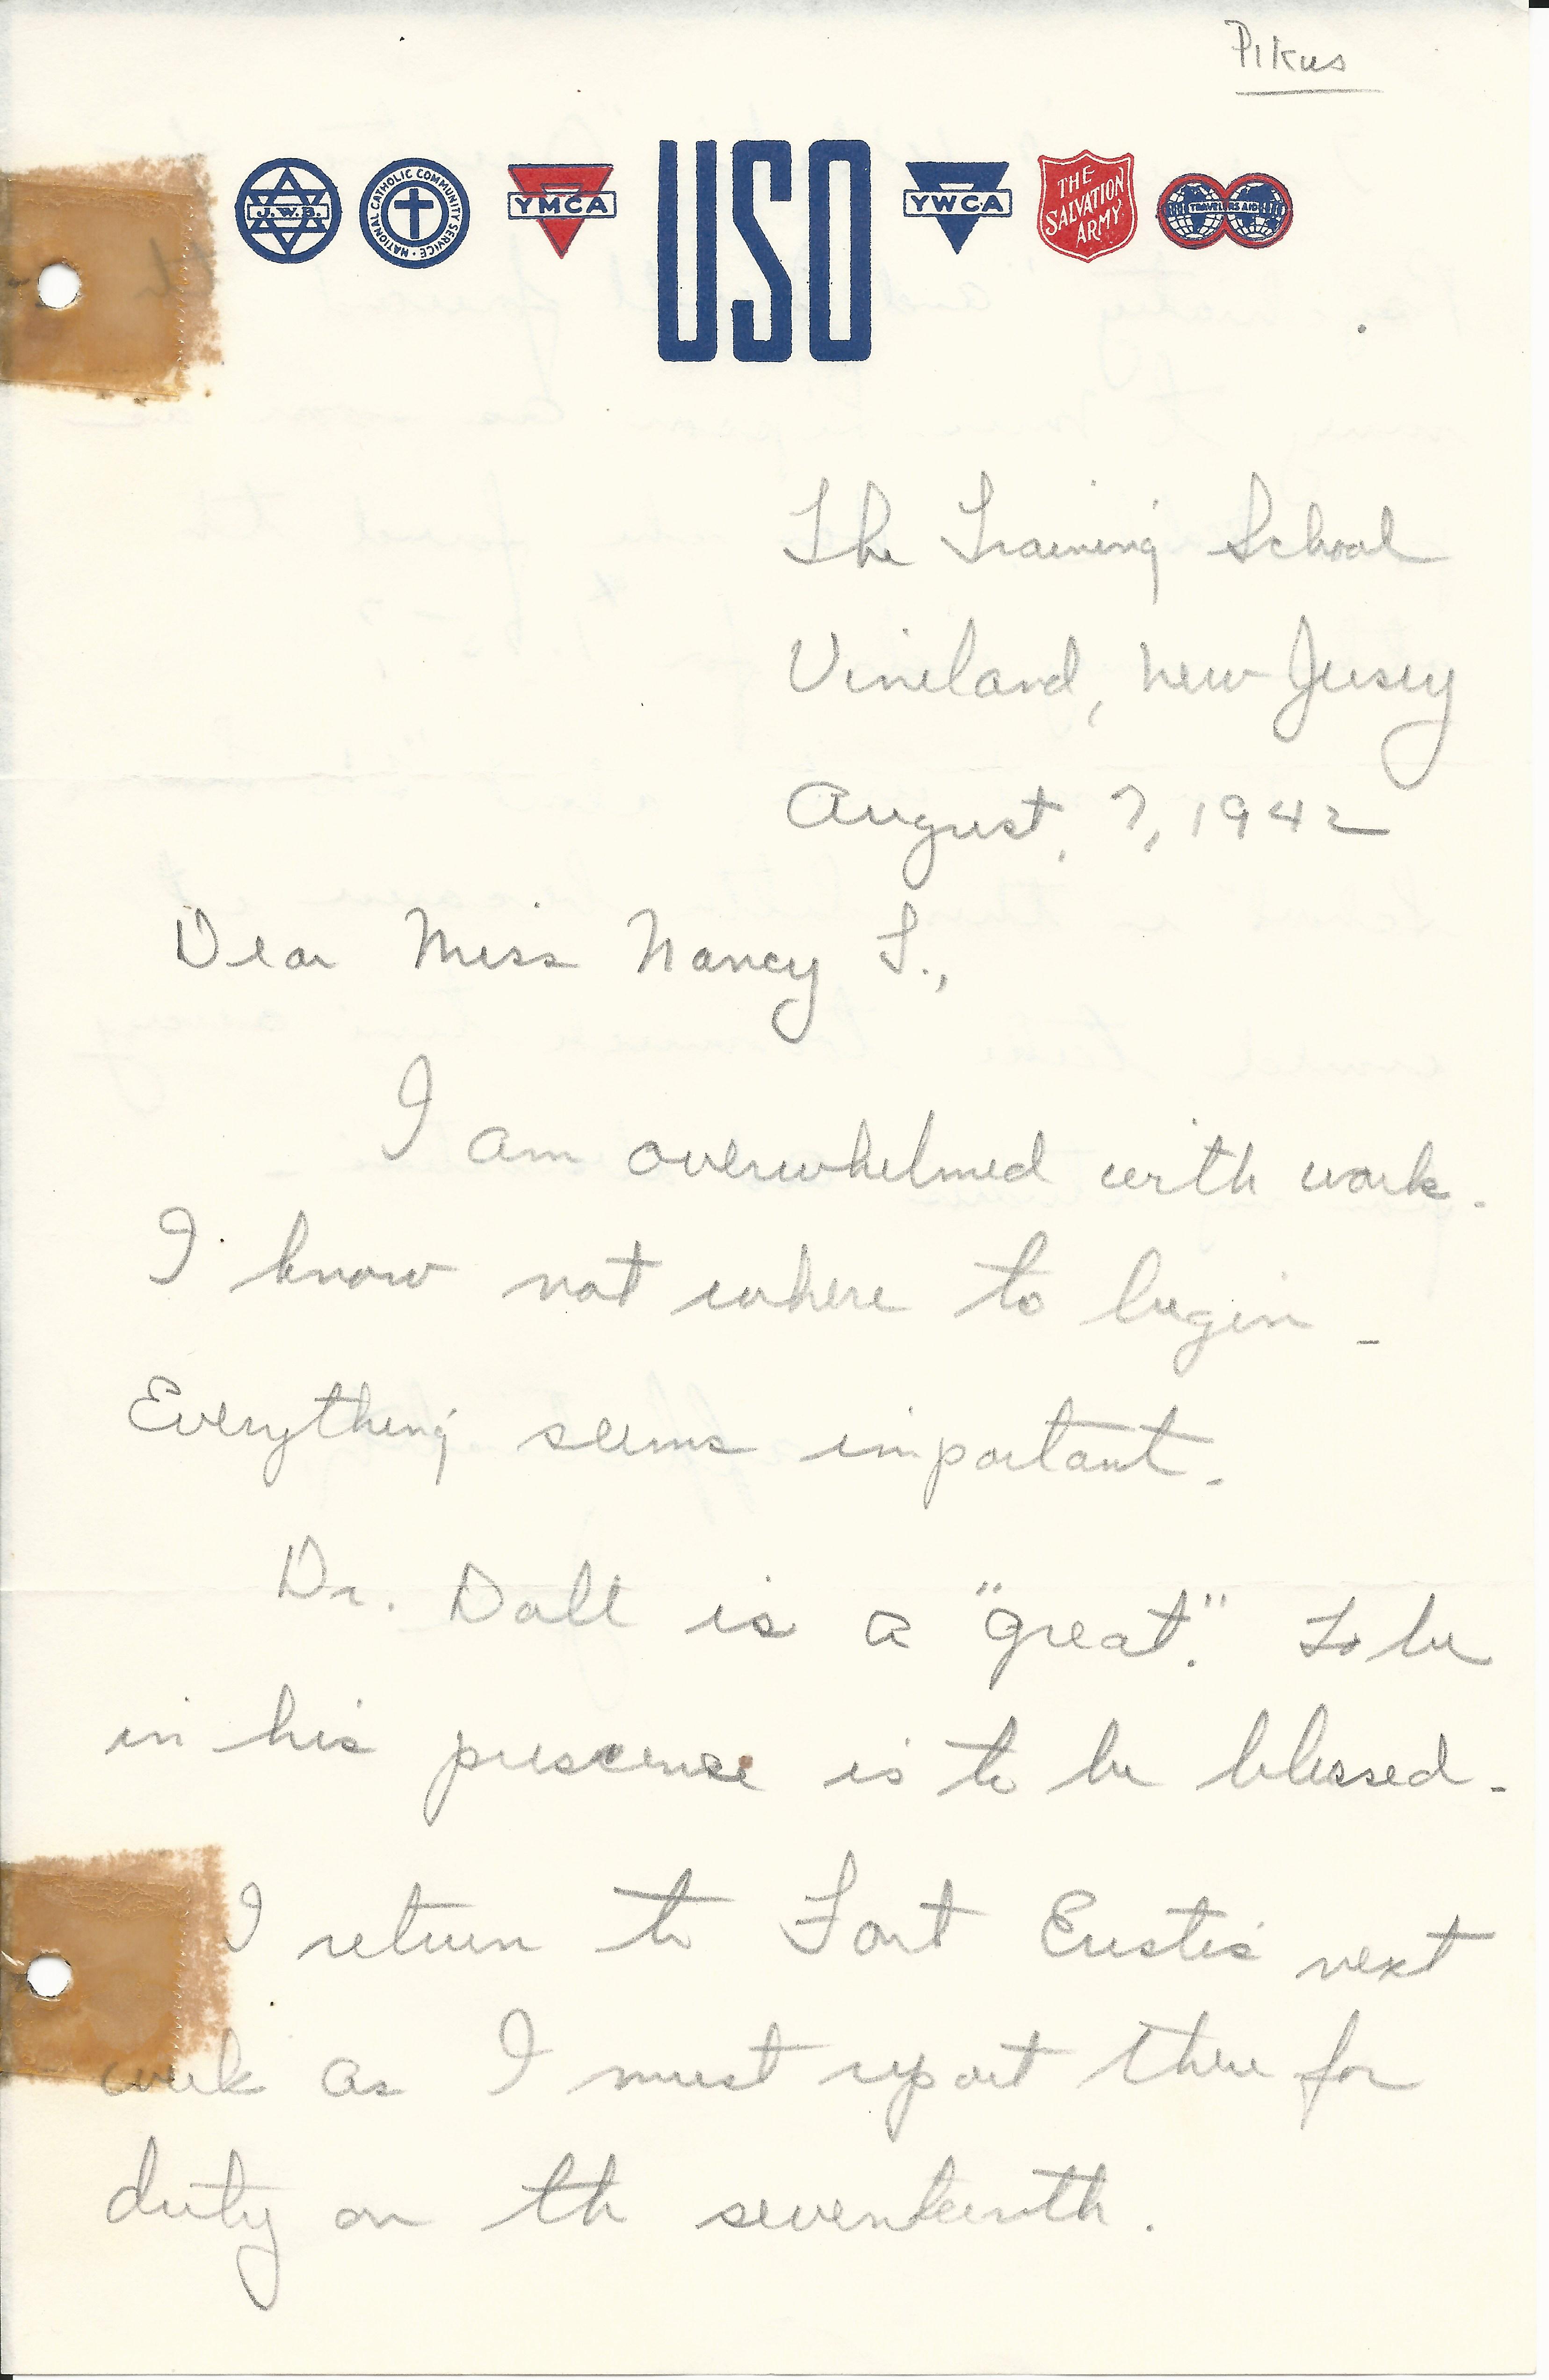 Pikus
J.W.B.
NATIONAL CATHOLIC COMMUNITY SERVICE
YMCA
USO
YWCA
THE SALVATION ARMY
TRAVELERS AID
The Training School
Vineland, New Jersey
August, 7, 1942
Dear Miss Nancy T.,
I am overwhelmed with work.
I know not where to begin -
Everything seems important.
Dr. Doll is a "great." To be
in his prescense is to be blessed.
I return to Fort Eustis next
week as I must report there for
duty on th seventeenth.